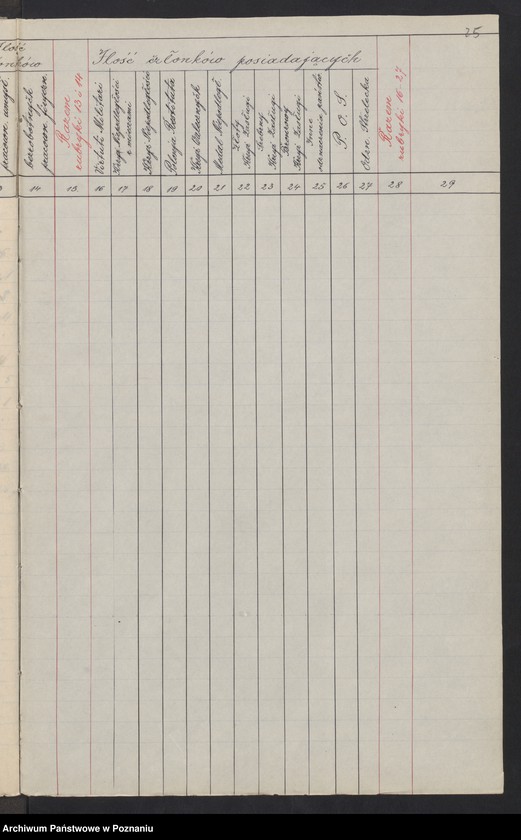 25
Ilość
członków
Ilość członków posiadających
pracown. umysł.
bezrobotnych
pracown. fizyczn.
Razem
rubryki 13 i 14
Virtuti Militari
Krzyż Niepodległości
z mieczami
Krzyż Niepodległości
Krzyż Walecznych
Medal Niepodległ.
Złoty
Krzyż Zasługi
Srebrny
Krzyż Zasługi
Bronzowy
Krzyż Zasługi
Inne
odznaczenia państw.
P. O. S.
Odzn. Strzelecka
Razem
rubryki 16-27
14 15 16 17 18 19 20 21 22 23 24 25 26 27 28 29
Archiwum Państwowe w Poznaniu